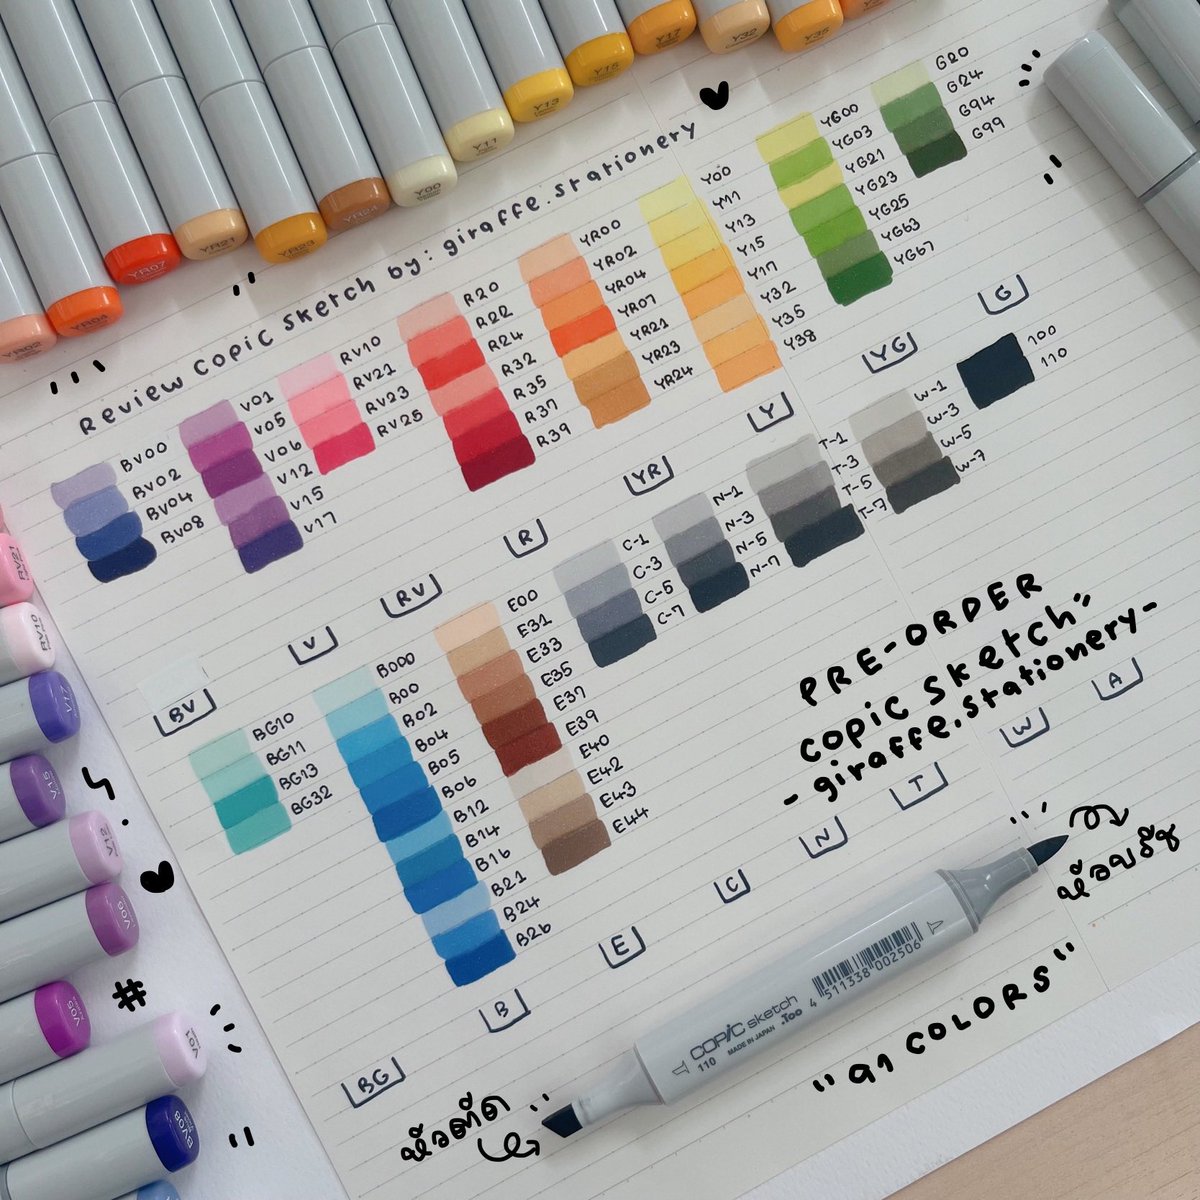 Y17
Y32
Y35
Y15
Y13
Y11
Y00
YR24
YR23
YR21
YR07
YR04
YR02
Review Copic Sketch by: giraffe.stationery
BV00
BV02
BV04
BV08
V01
V05
V06
V12
V15
V17
RV10
RV21
RV23
RV25
R20
R22
R24
R32
R35
R37
R39
YR00
YR02
YR04
YR07
YR21
YR23
YR24
Y00
Y11
Y13
Y15
Y17
Y32
Y35
Y38
YG00
YG03
YG21
YG23
YG25
YG63
YG67
G20
G24
G94
G99
BV
V
RV
R
YR
Y
YG
G
BG10
BG11
BG13
BG32
B000
B00
B02
B04
B05
B06
B12
B14
B16
B21
B24
B26
E00
E31
E33
E35
E37
E39
E40
E42
E43
E44
C-1
C-3
C-5
C-7
N-1
N-3
N-5
N-7
T-1
T-3
T-5
T-7
W-1
W-3
W-5
W-7
100
110
BG
B
E
C
N
T
W
A
PRE-ORDER
Copic Sketch
- giraffe.stationery -
หัวบรัช
"91 COLORS"
COPIC sketch
110 MADE IN JAPAN .Too
4 511338 002506
หัวตัด
RV21
RV10
V17
V15
V12
V06
V05
V01
BV08